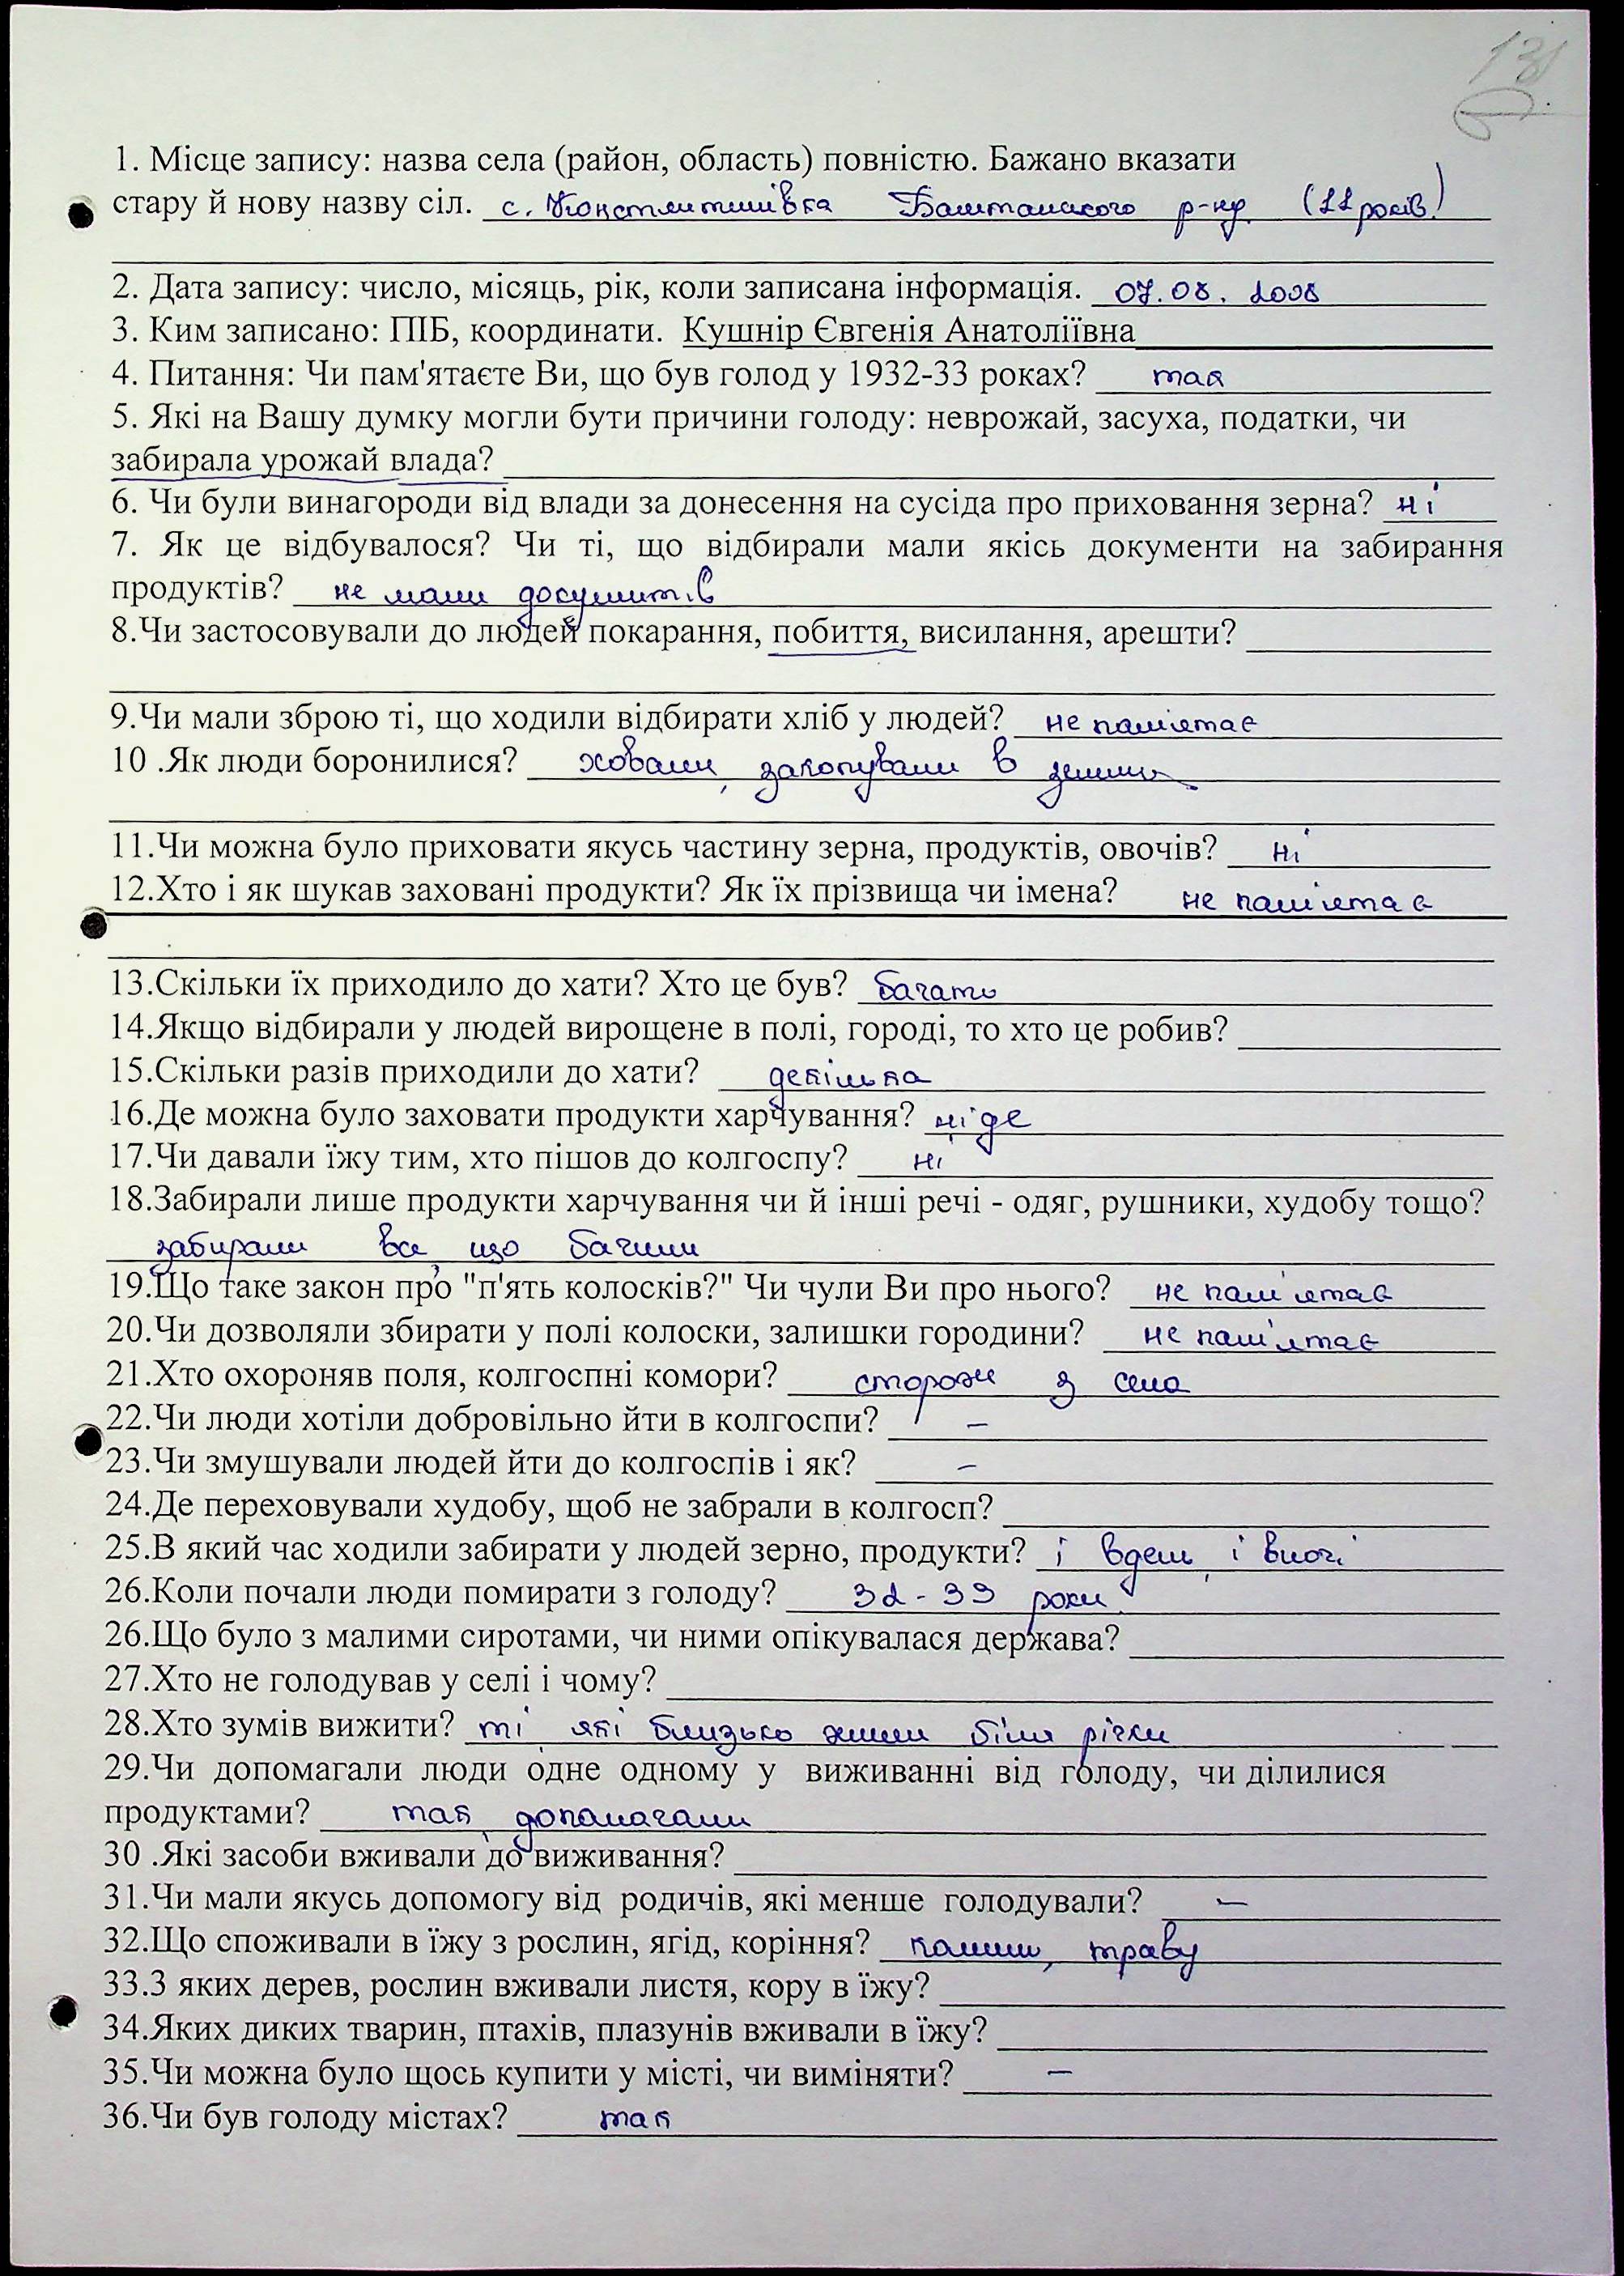 131
1. Місце запису: назва села (район, область) повністю. Бажано вказати
стару й нову назву сіл. с. Костянтинівка Баштанського р-ну (11 років)
2. Дата запису: число, місяць, рік, коли записана інформація. 07.08.2008
3. Ким записано: ПІБ, координати. Кушнір Євгенія Анатоліївна
4. Питання: Чи пам'ятаєте Ви, що був голод у 1932-33 роках? так
5. Які на Вашу думку могли бути причини голоду: неврожай, засуха, податки, чи
забирала урожай влада?
6. Чи були винагороди від влади за донесення на сусіда про приховання зерна? ні
7. Як це відбувалося? Чи ті, що відбирали мали якісь документи на забирання
продуктів? не мали документів
8.Чи застосовували до людей покарання, побиття, висилання, арешти?
9.Чи мали зброю ті, що ходили відбирати хліб у людей? не пам'ятає
10 .Як люди боронилися? ховали, закопували в землю
11.Чи можна було приховати якусь частину зерна, продуктів, овочів? ні
12.Хто і як шукав заховані продукти? Як їх прізвища чи імена? не пам'ятає
13.Скільки їх приходило до хати? Хто це був? багато
14.Якщо відбирали у людей вирощене в полі, городі, то хто це робив?
15.Скільки разів приходили до хати? декілька
16.Де можна було заховати продукти харчування? ніде
17.Чи давали їжу тим, хто пішов до колгоспу? ні
18.Забирали лише продукти харчування чи й інші речі - одяг, рушники, худобу тощо?
забирали все, що бачили
19.Що таке закон про "п'ять колосків?" Чи чули Ви про нього? не пам'ятає
20.Чи дозволяли збирати у полі колоски, залишки городини? не пам'ятає
21.Хто охороняв поля, колгоспні комори? сторожі з села
22.Чи люди хотіли добровільно йти в колгоспи? –
23.Чи змушували людей йти до колгоспів і як? –
24.Де переховували худобу, щоб не забрали в колгосп?
25.В який час ходили забирати у людей зерно, продукти? і вдень, і вночі
26.Коли почали люди помирати з голоду? 32-33 роки
26.Що було з малими сиротами, чи ними опікувалася держава?
27.Хто не голодував у селі і чому?
28.Хто зумів вижити? ті, які близько жили біля річки
29.Чи допомагали люди одне одному у виживанні від голоду, чи ділилися
продуктами? так, допомагали
30 .Які засоби вживали до виживання?
31.Чи мали якусь допомогу від родичів, які менше голодували? –
32.Що споживали в їжу з рослин, ягід, коріння? калину, траву
33.З яких дерев, рослин вживали листя, кору в їжу?
34.Яких диких тварин, птахів, плазунів вживали в їжу?
35.Чи можна було щось купити у місті, чи виміняти? –
36.Чи був голоду містах? так